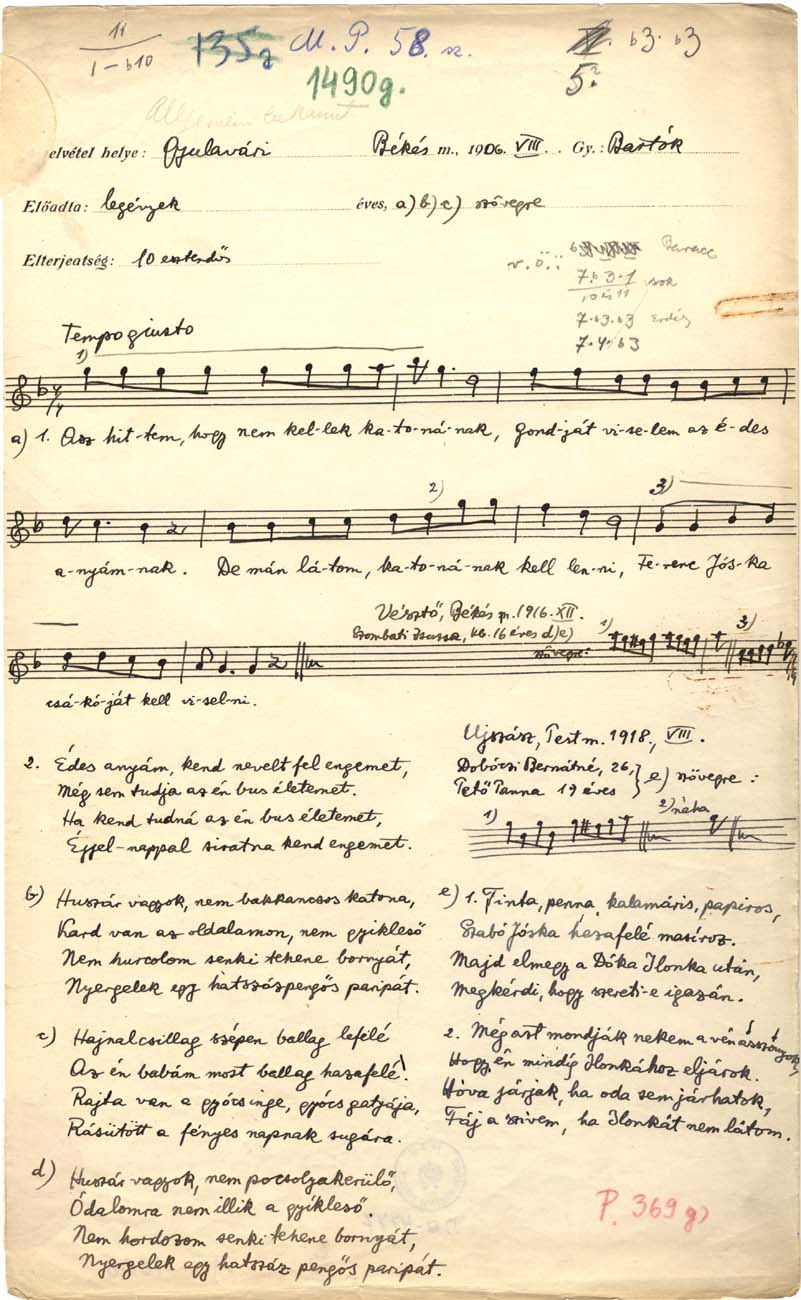 11
1 – b10
135g M. P. 58. sz.
1490g.
b3. b3
5.
Allgemein bekannt
elvétel helye: Gyulavári Békés m., 1906. VIII. Gy.: Bartók
Előadta: legények éves, a) b) c) szövegre
Elterjeatség: 10 esztendős
v. ö.:
7. b3. 1 sok
10 és 11
7. b3. b3 Erdély
7. 4. b3
Tempo giusto
1)
a) 1. Asz hit-tem, hogy nem kel-lek ka-to-ná-nak, gond-ját vi-se-lem az é-des
2) 3)
a-nyám-nak. De mán lá-tom, ka-to-ná-nak kell len-ni, Fe-renc Jós-ka
Vésztő, Békés m. 1916. XII.
Szombati Zsuzsa, kb. 16 éves d) e)
szövegre: 1) 3)
csá-kó-ját kell vi-sel-ni.
Ujszász, Pest m. 1918., VIII.
Dobóczi Bernátné, 26,
Pető Panna 19 éves } e) szövegre:
1) 2) néha
2. Édes anyám, kend nevelt fel engemet,
Még sem tudja az én bus életemet.
Ha kend tudná az én bus életemet,
Éjjel-nappal siratna kend engemet.
b) Huszár vagyok, nem bakkancsos katona,
Kard van az oldalamon, nem gyikleső
Nem hurcolom senki tehene bornyát,
Nyergelek egy hatszázpengős paripát.
c) Hajnalcsillag szépen ballag lefélé
Az én babám most ballag hazafelé!
Rajta van a gyócsinge, gyócs gatyája,
Rásütött a fényes napnak sugára.
d) Huszár vagyok, nem pocsolyakerülő,
Ódalomra nem illik a gyikleső.
Nem hordozom senki tehene bornyát,
Nyergelek egy hatszáz pengős paripát.
e) 1. Tinta, penna, kalamáris, papiros,
Szabó Jóska hazafelé masíroz.
Majd elmegy a Dóka Ilonka után,
Megkérdi, hogy szereti-e igazán.
2. Még azt mondják nekem a vén asszonyok,
Hogy én mindíg Ilonkához eljárok.
Hóva járjak, ha oda sem járhatok,
Fáj a szivem, ha Ilonkát nem látom.
P. 369 g)